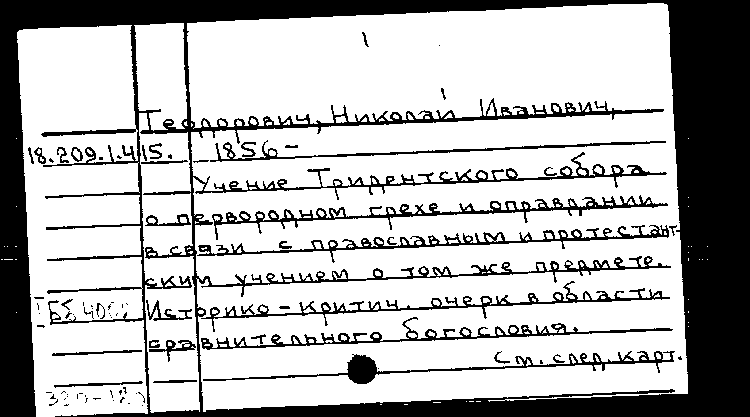 1
Теодорович, Николай Иванович,
18.209.1.415. 1856 –
Учение Тридентского собора
о первородном грехе и оправдании
в связи с православным и протестант-
ским учением о том же предмете.
Историко – критич. очерк в области
сравнительного богословия.
См. след. карт.